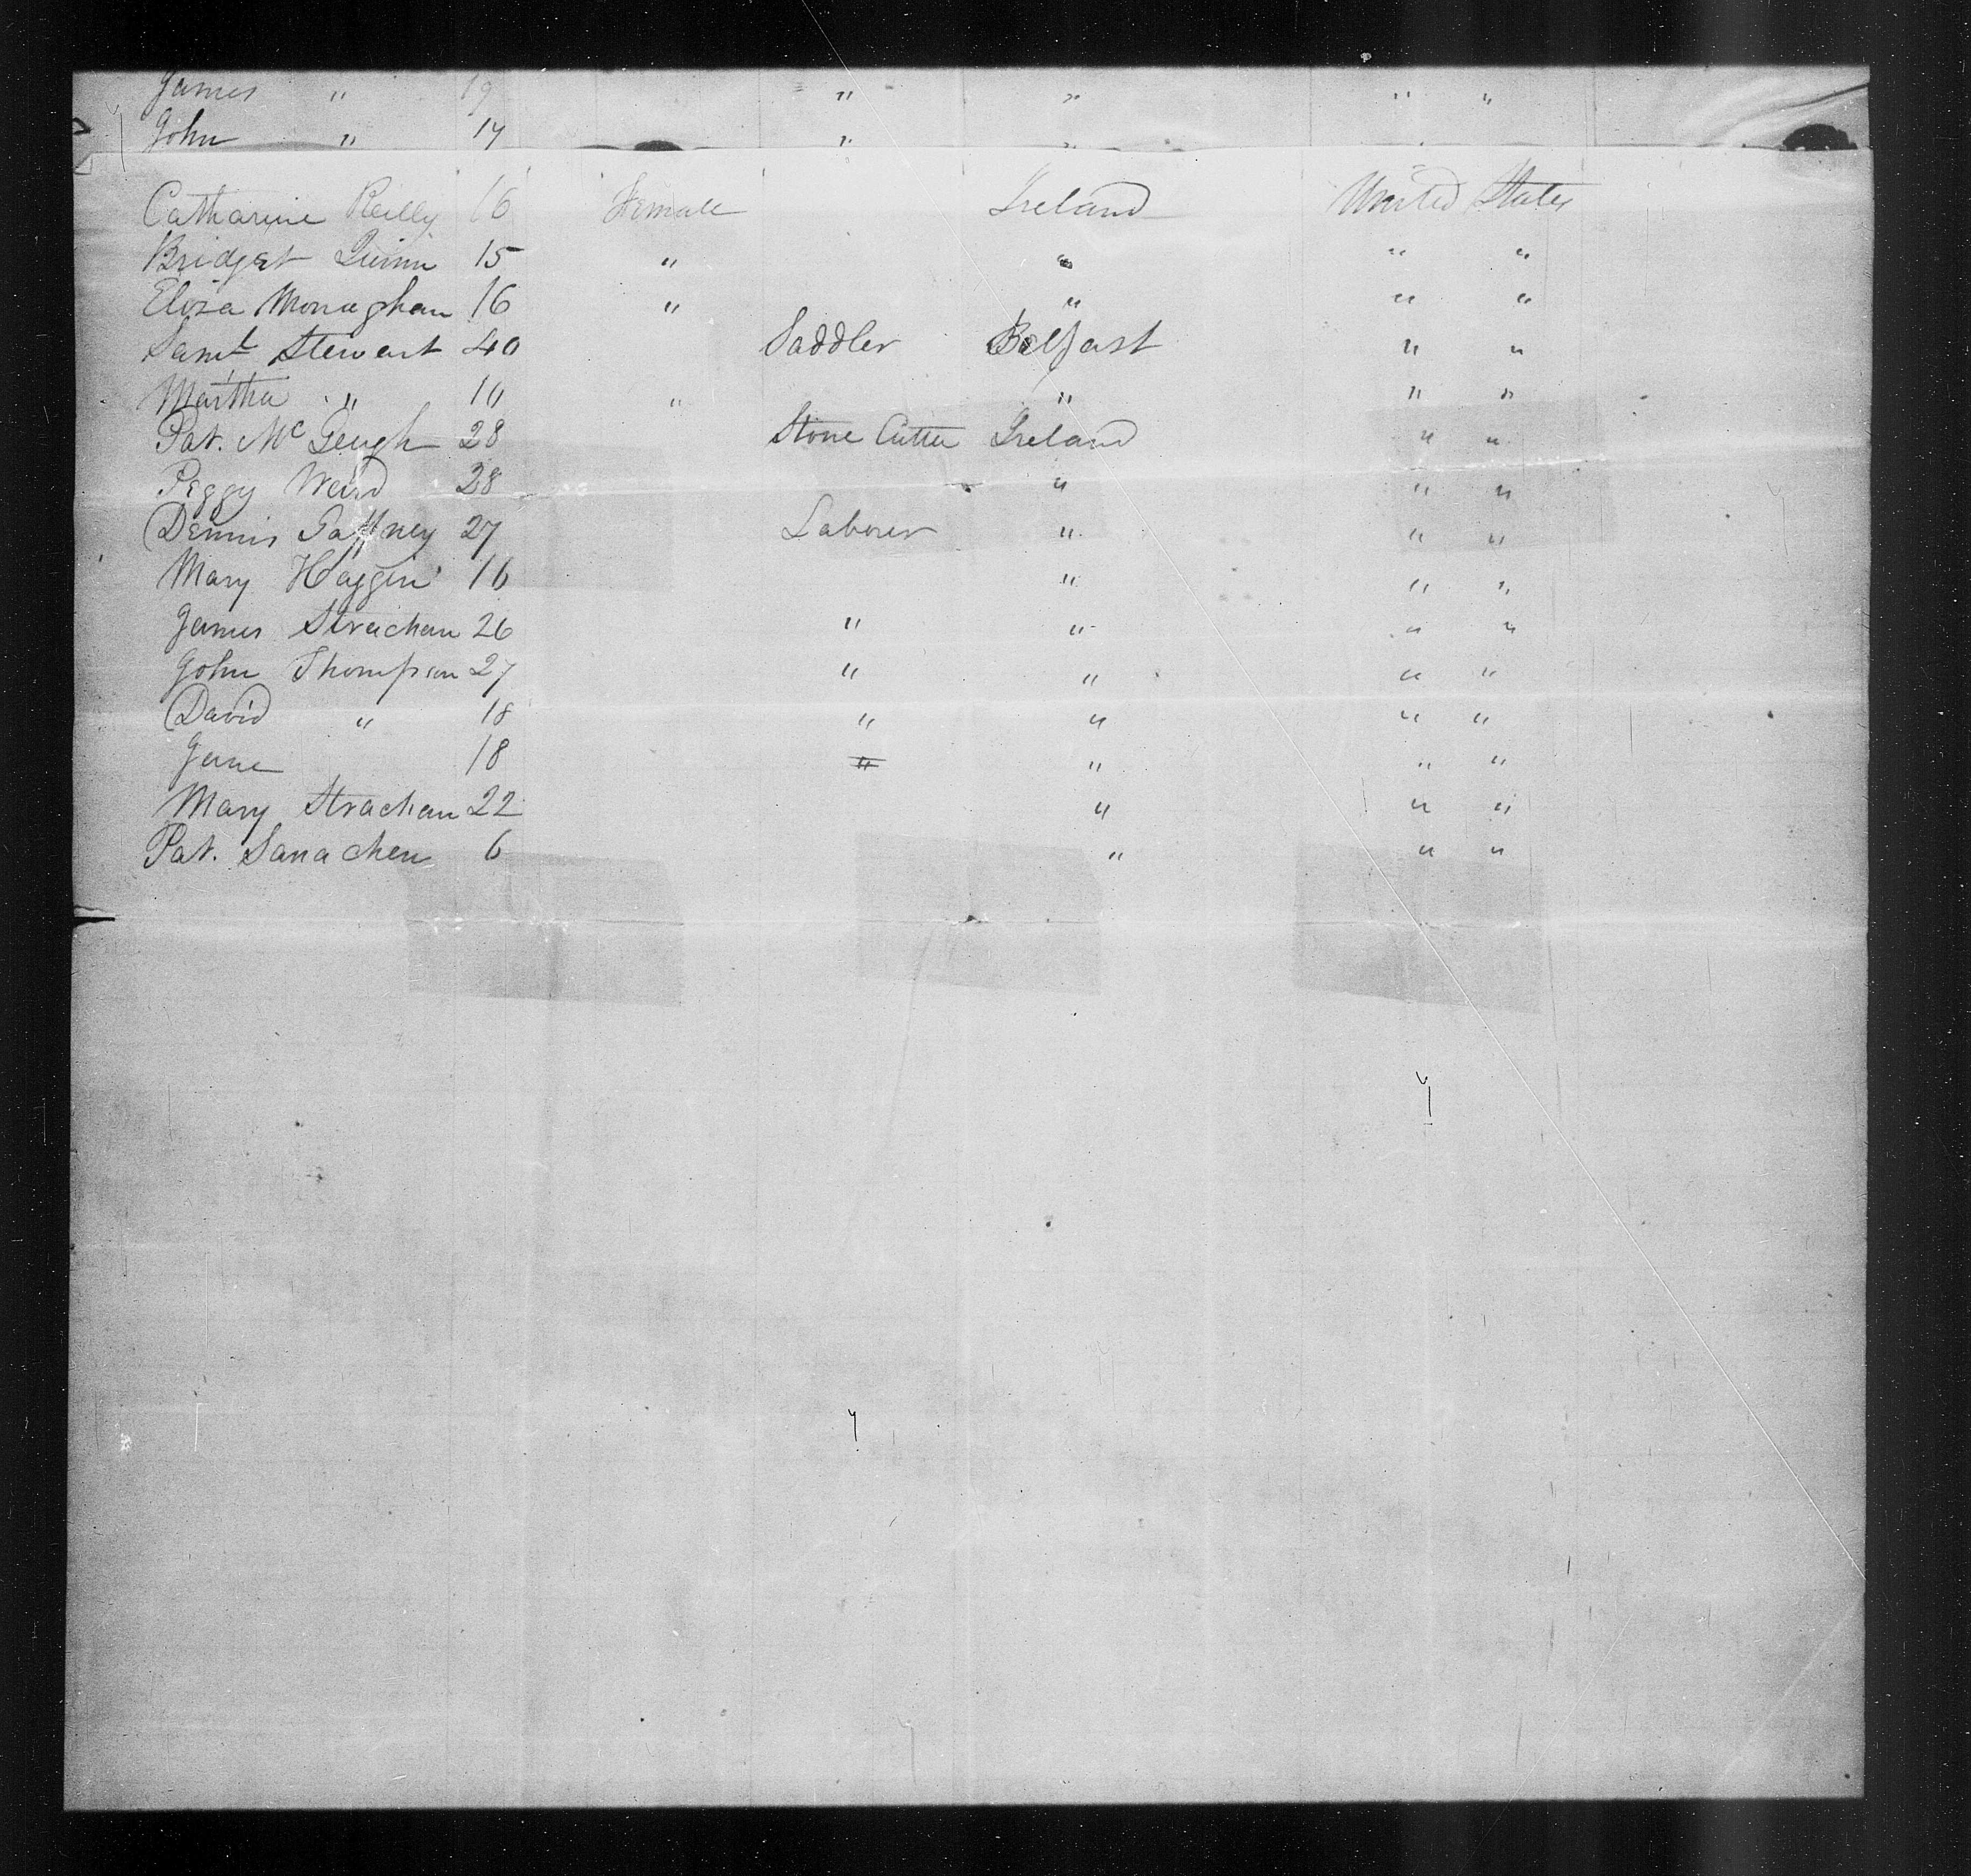 James " 19 " " " "
John " 17 " "
Catharine Reilly 16 Female Ireland United States
Bridget Quinn 15 " " " "
Eliza Monaghan 16 " " " "
Saml Stewart 40 Saddler Belfast " "
Martha " 10 " " " "
Pat. Mc Geugh 28 Stone Cutter Ireland " "
Peggy Ward 28 " " "
Dennis Gaffney 27 Laborer " " "
Mary Haggin 16 " " "
James Strachan 26 " " " "
John Thompson 27 " " " "
David " 18 " " " "
Jane 18 " " " "
Mary Strachan 22 " " "
Pat. 6 " " "